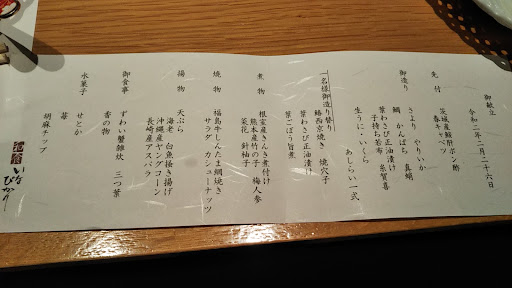 御献立
令和二年二月二十六日
先付
茨城産鮟肝ポン酢
春キャベツ
御造り
さより やりいか
鯛 かんぱち 真鯛
葉わさび正油漬け
子持ち若布 糸賀喜
生うに・いくら
あしらい一式
一名様御造り替り
鰆西京焼き 焼穴子
葉わさび正油漬け
葉ごぼう旨煮
煮物
根室産きんき煮付け
熊本産竹の子 梅人参
菜花 針柚子
焼物
福島牛しんたま網焼き
サラダ カシューナッツ
揚物
天ぷら
海老 白魚掻き揚げ
沖縄産ヤングコーン
長崎産アスパラ
御食事
ずわい蟹雑炊 三つ葉
香の物
水菓子
せとか
苺
胡麻チップ
いなびかり